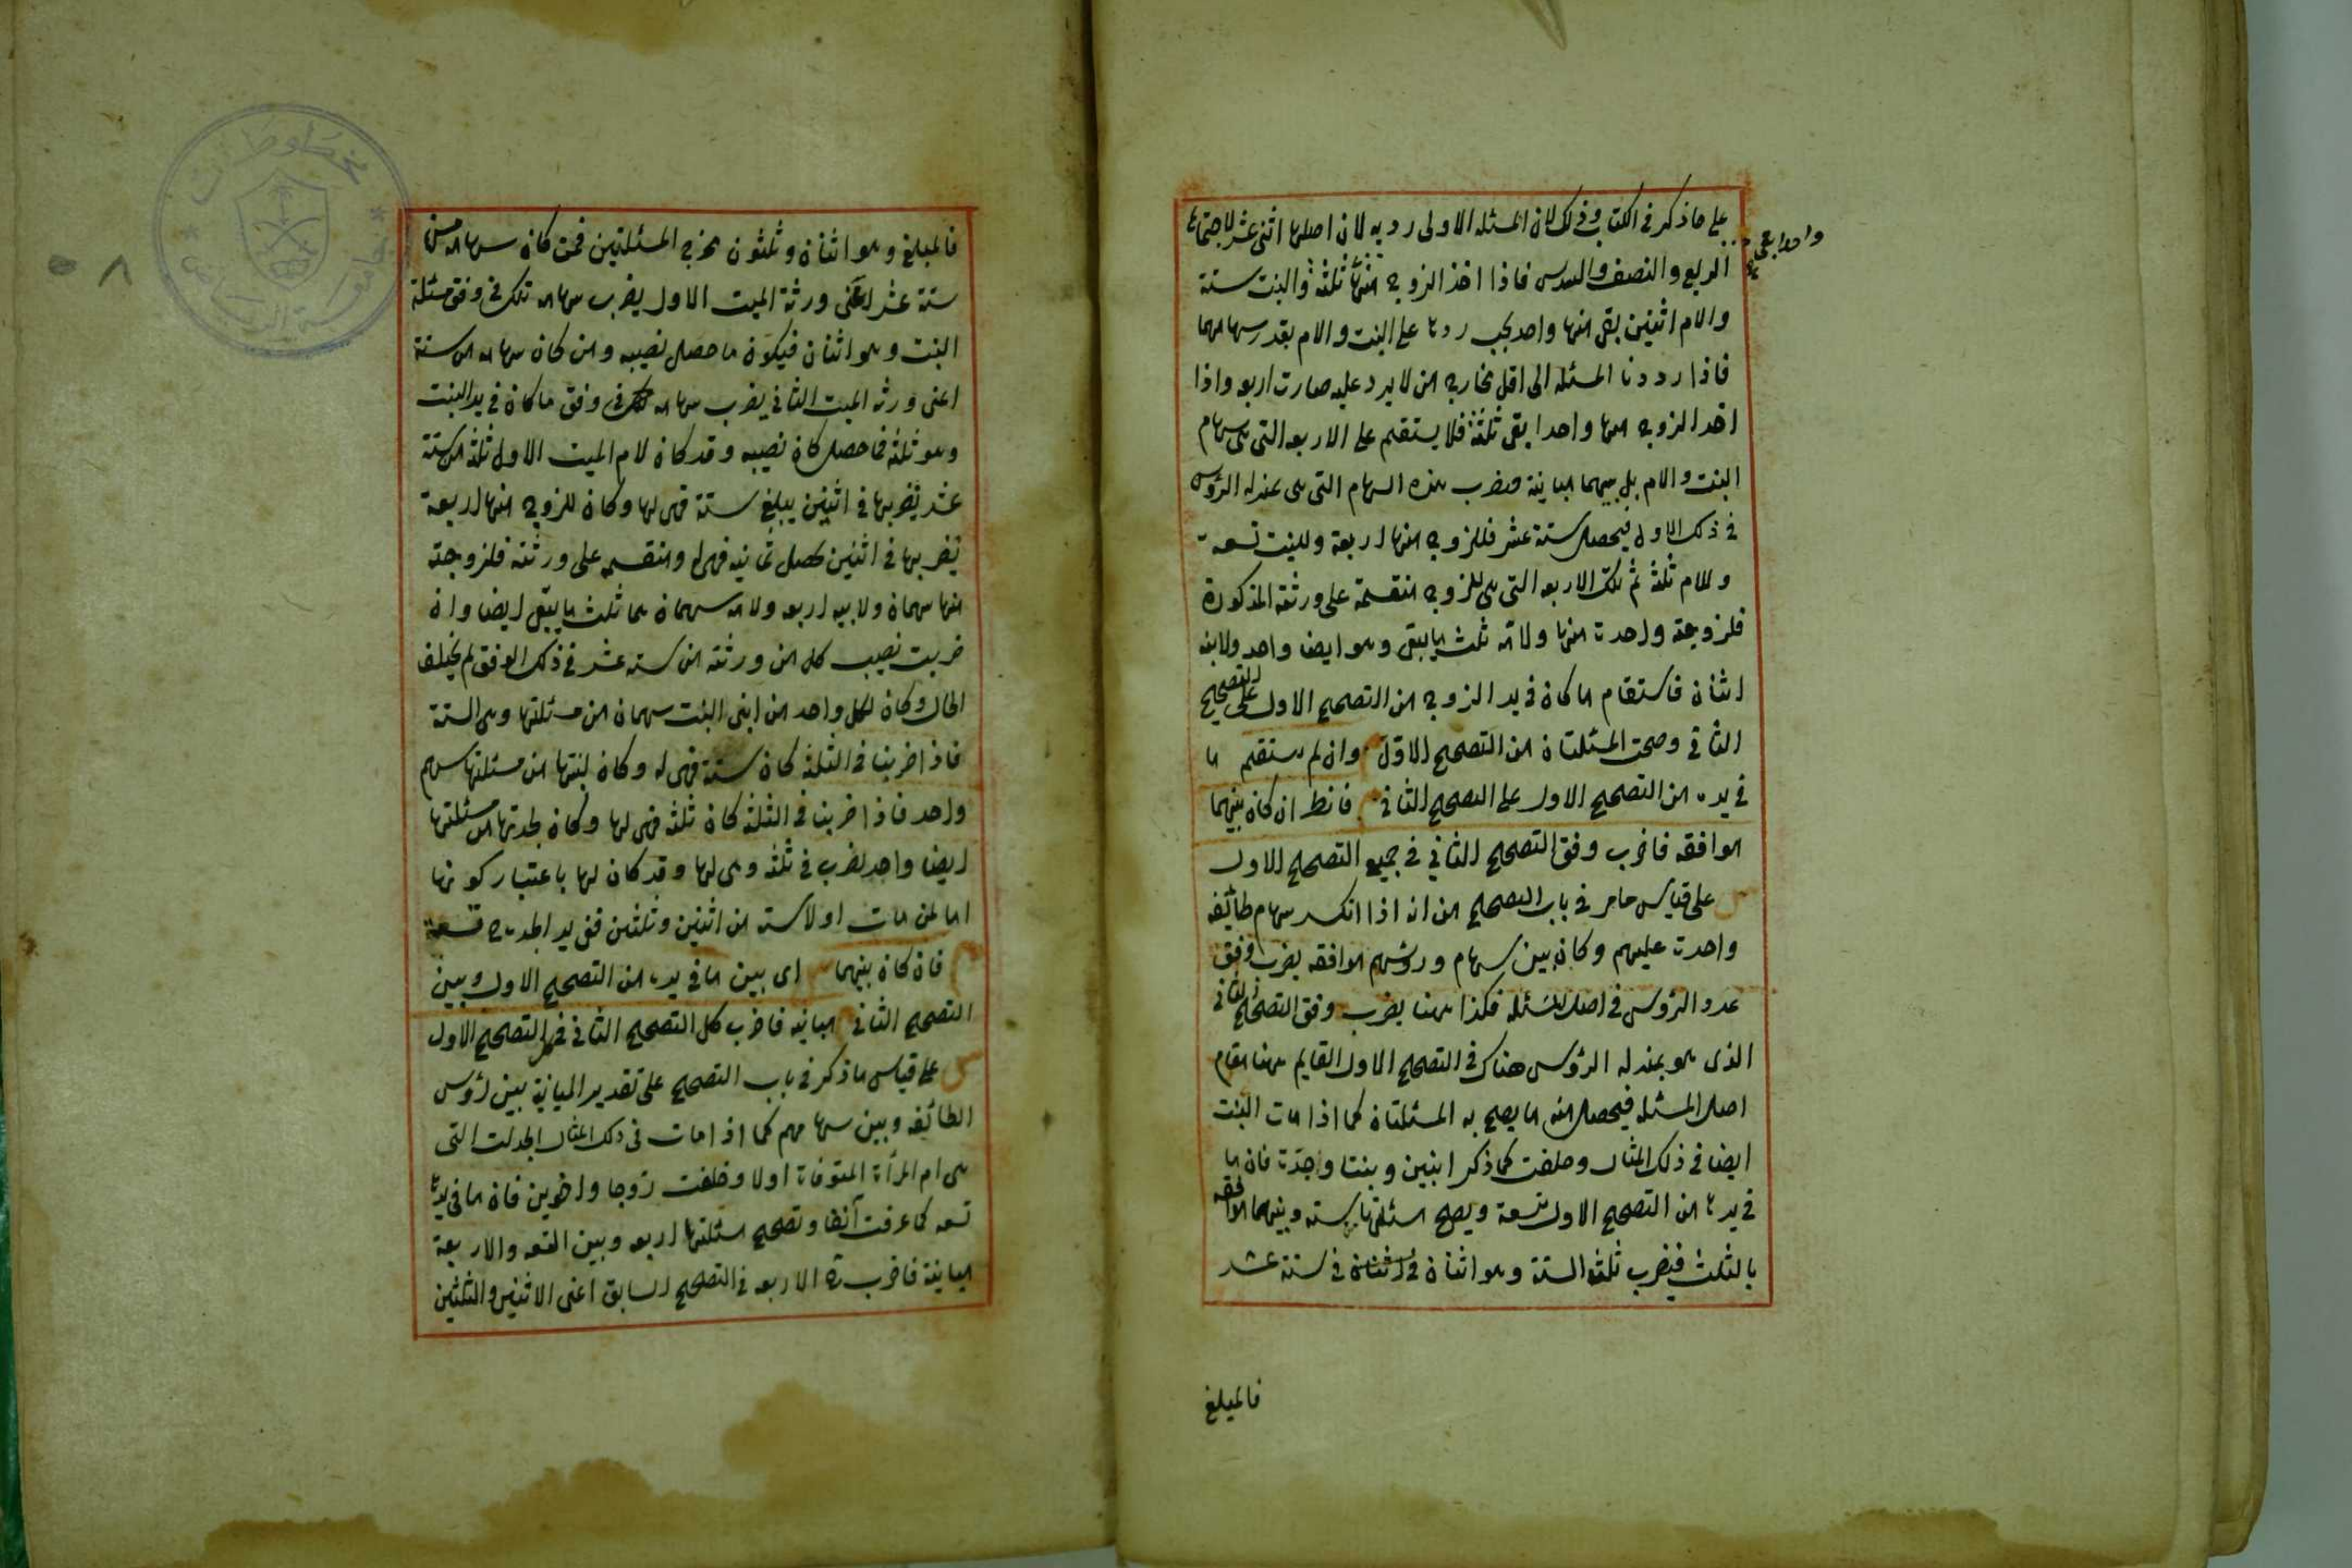 على ما ذكر فى الكتاب وذلك لان المسئله الاولى رديه لان اصلها اثنى عشر لاجتماع
الربع والنصف والسدس فاذا اخذ الزوج منها ثلثة والبنت ستة
والام اثنين بقى منها واحد يجب ردها على البنت والام بقدر سهامهما
فاذا رددنا المسئله الى اقل مخارج من لا يرد عليه صارت اربعه واذا
اخذ الزوج منها واحدا بقى ثلثة فلا يستقيم على الاربعه التى هى سهام
البنت والام بل بينهما مباينة فنضرب هذه السهام التى هى بمنزله الرؤس
فى ذلك الاول فيحصل ستة عشر فللزوج منها اربعة وللبنت تسعة
وللام ثلثة ثم تلك الاربعه التى هى للزوج منقسمة على ورثته المذكورة
فلزوجته واحدة منها ولامه ثلث ما يبقى وهو ايضا واحد ولابيه
اثنان فاستقام ما كان فى يد الزوج من التصحيح الاول على التصحيح
الثانى وصحت المسئلتان من التصحيح الاول وان لم يستقم ما
فى يده من التصحيح الاول على التصحيح الثانى فانظر ان كان بينهما
موافقه فاضرب وفق التصحيح الثانى فى جميع التصحيح الاول
ش على قياس ما مر فى باب التصحيح من انه اذا انكسر سهام طائفه
واحدة عليهم وكان بين سهام ورؤسهم موافقه يضرب وفق
عدد الرؤس فى اصل المسئله فكذا ههنا يضرب وفق التصحيح الثانى
الذى هو بمنزله الرؤس هناك فى التصحيح الاول القايم ههنا مقام
اصل المسئله فيحصل منه ما يصح به المسئلتان كما اذا مات البنت
ايضا فى ذلك المثال وخلفت كما ذكر ابنين وبنتا وجدة فان ما
فى يدها من التصحيح الاول تسعة ويصح مسئلتها بسته وبينهما موافقه
بالثلث فيضرب ثلث الستة وهو اثنان فى ستة عشر
فالمبلغ
فالمبلغ وهو اثنان وثلثون مخرج المسئلتين فمن كان سهامه من
ستة عشر اعنى ورثة الميت الاول يضرب سهامه تلك فى وفق مسئلة
البنت وهو اثنان فيكون ما حصل نصيبه ومن كان سهامه من ستة
اعنى ورثه الميت الثانى يضرب سهامه تلك فى وفق ما كان فى يد البنت
وهو ثلثة فما حصل كان نصيبه وقد كان لام الميت الاول ثلثه من ستة
عشر نضربها فى اثنين يبلغ ستة فهى لها وكان للزوج منها اربعة
نضربها فى اثنين يحصل ثمانيه فهى له ومنقسمه على ورثته فلزوجته
منها سهمان ولابيه اربعه ولامه سهمان هما ثلث ما يبقى ايضا وان
ضربت نصيب كل من ورثته من سته عشر فى ذلك الوفق لم يختلف
الحال وكان لكل واحد من ابنى البنت سهمان من مسئلتها وهى الستة
فاذا ضربنا فى الثلثه كان ستة فهى له وكان لبنتها من مسئلتها سهم
واحد فاذا ضربنا فى الثلثه كان ثلثه فهى لها وكان لجدتها من مسئلتها
ايضا واحد نضرب فى ثلثه وهى لها وقد كان لها باعتبار كونها
اما لمن مات اولا سته من اثنين وثلثين ففى يد الجدة تسعة
فان كان بينهما اى بين ما فى يده من التصحيح الاول وبين
التصحيح الثانى مباينه فاضرب كل التصحيح الثانى فى كل التصحيح الاول
ش على قياس ما ذكر فى باب التصحيح على تقدير المباينة بين رؤس
الطائفه وبين سهامهم كما اذا مات فى ذلك المثال الجدة التى
هى ام المرأة المتوفاة اولا وخلفت زوجا واخوين فان ما فى يدها
تسعه كما عرفت آنفا وتصحيح مسئلتها اربعه وبين التسعه والاربعة
مباينة فاضرب الاربعه فى التصحيح السابق اعنى الاثنين والثلثين